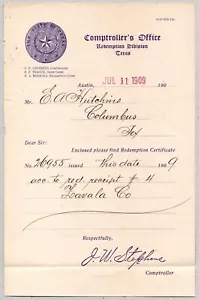 Comptroller's Office
Redemption Division
Texas
Austin, JUL 11 1909 190
Mr. E A Hutchins
Columbus
Tex
Dear Sir:
Enclosed please find Redemption Certificate
No. 26955 issued this date 1909
acc to red. receipt # 4
Zavala Co
Respectfully,
J. W. Stephens
Comptroller